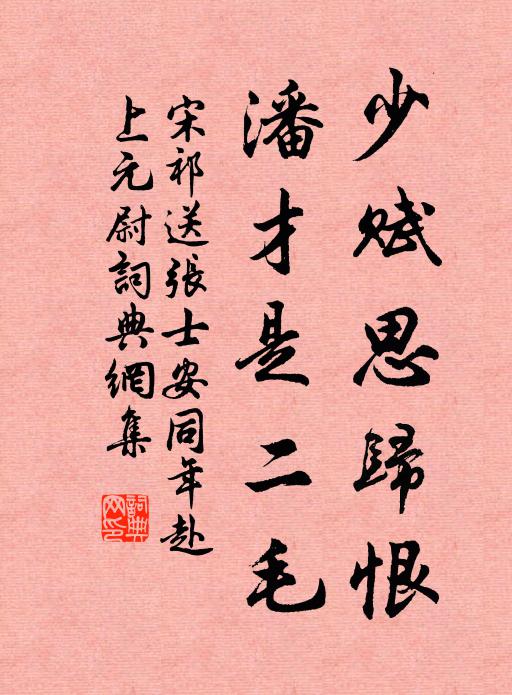 少赋思歸恨
潘才是二毛
宋祁送張士安同年赴
上元尉詞典網集
詞典
网印